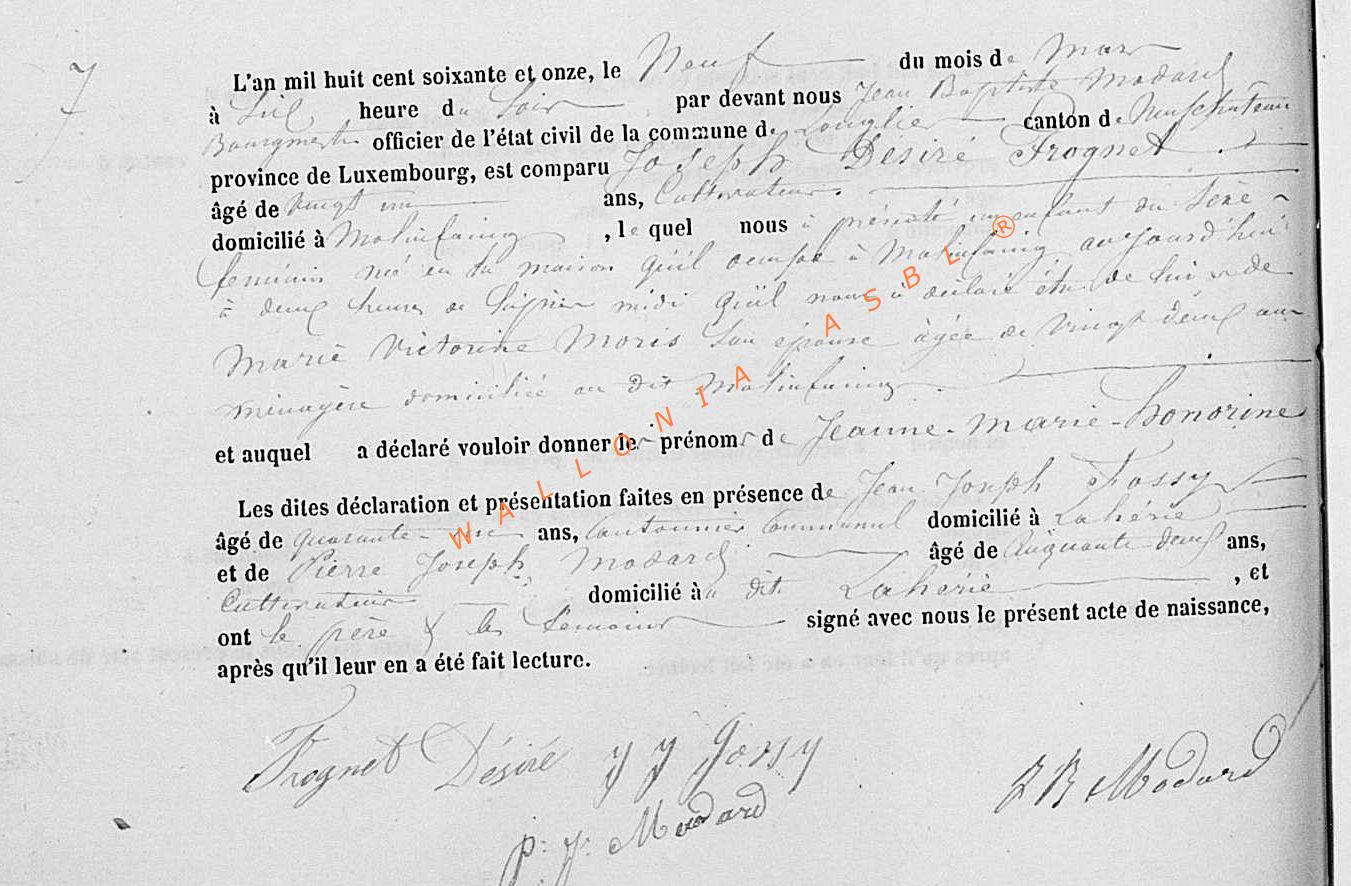 7
L'an mil huit cent soixante et onze, le Neuf du mois de Mars
à Six heure du Soir par devant nous Jean Baptiste Modard
Bourgmestre officier de l'état civil de la commune de Longlier canton de Neufchateau
province de Luxembourg, est comparu Joseph Desiré Frognet
âgé de Vingt un ans, Cultivateur.
domicilié à Molinfaing, le quel nous à présenté un enfant du Sexe
feminin né en la maison qu'il occupe à Molinfaing aujourd'hui
à deux heures de midi qu'il nous à déclaré être de lui & de
Marie Victorine Moris Son épouse âgée de Vingt deux ans
ménagère domiciliée au dit Molinfaing.
et auquel a déclaré vouloir donner les prénoms de Jeanne-Marie-Honorine
Les dites déclaration et présentation faites en présence de Jean Joseph Fossy
âgé de quarante ans, Cantonnier Communal domicilié à Lahérie
et de Pierre Joseph Modard âgé de Cinquante deux ans,
Cultivateur domicilié au dit Lahérie, et
ont le père & les temoins signé avec nous le présent acte de naissance,
après qu'il leur en a été fait lecture.
Frognet Désiré J J Fossy
J B Modard
p. j. Modard
WALLONIA ASBL ®